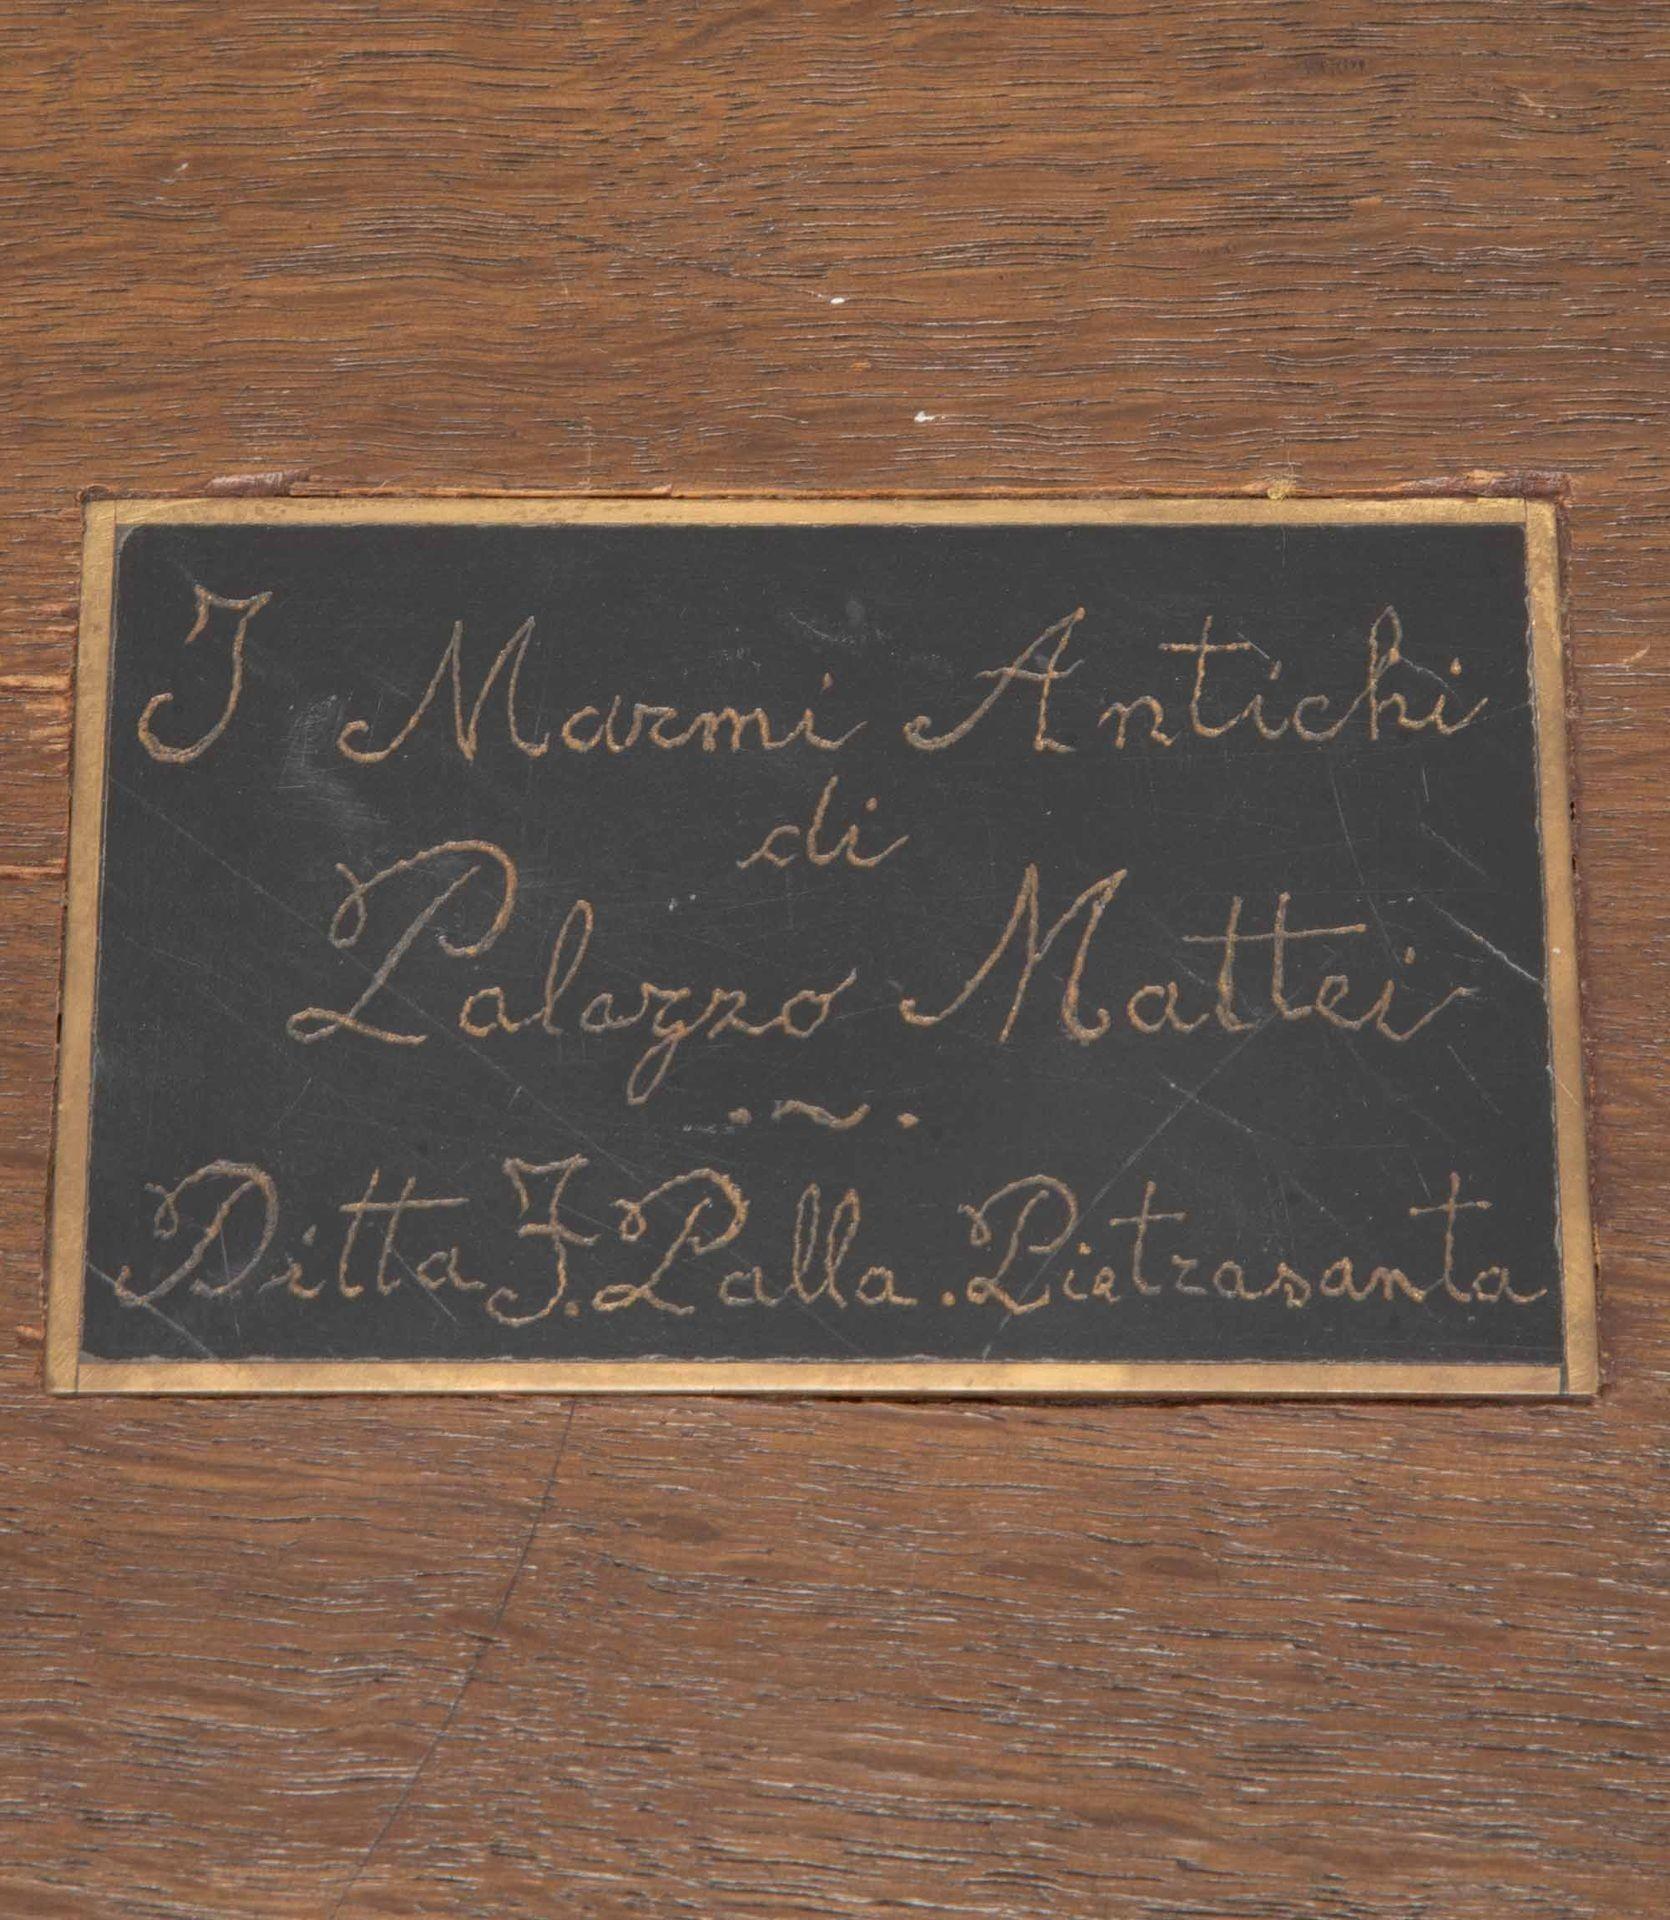 I Marmi Antichi
di
Palazzo Mattei
. ~ .
Ditta F. Palla . Pietrasanta